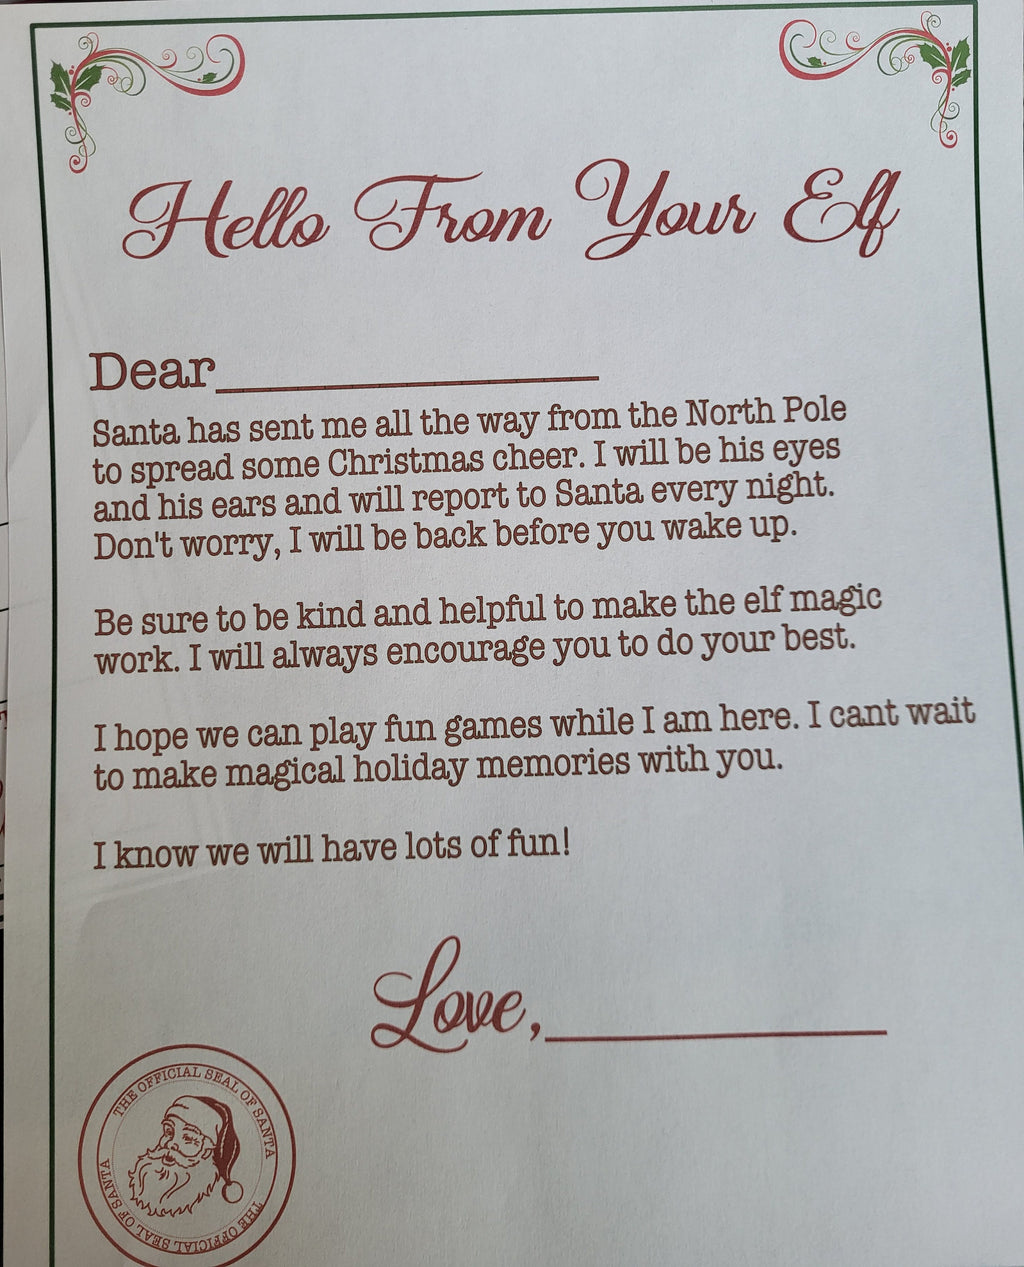 Hello From Your Elf
Dear_______________
Santa has sent me all the way from the North Pole
to spread some Christmas cheer. I will be his eyes
and his ears and will report to Santa every night.
Don't worry, I will be back before you wake up.
Be sure to be kind and helpful to make the elf magic
work. I will always encourage you to do your best.
I hope we can play fun games while I am here. I cant wait
to make magical holiday memories with you.
I know we will have lots of fun!
Love,_______________
THE OFFICIAL SEAL OF SANTA
THE OFFICIAL SEAL OF SANTA